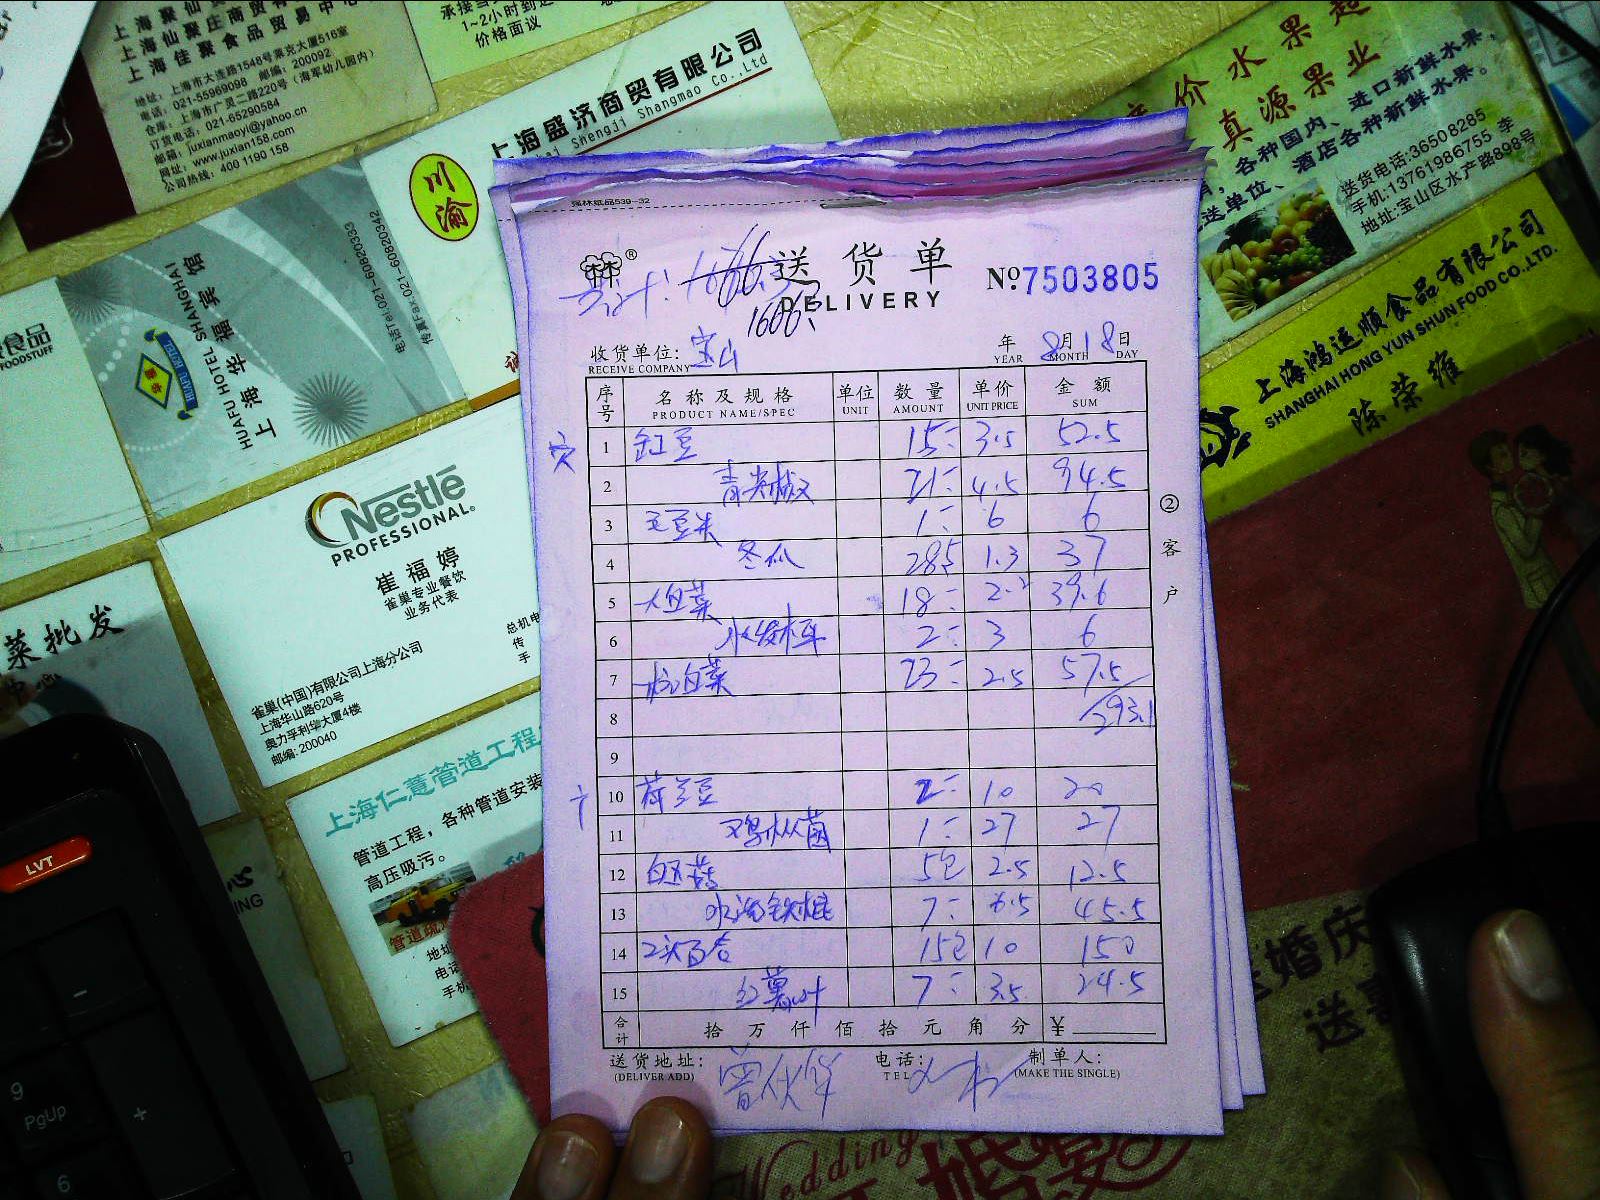 上海仙聚庄商贸有
上海佳聚食品贸易中心
地址：上海市大连路1548号莱克大厦516室
电话：021-55969098 邮编：200092
仓库：上海市广灵二路220号（海军幼儿园内）
订货电话：021-65290584
邮箱：juxianmaoyi@yahoo.cn
网址：www.juxian158.com
公司热线：400 1190 158
1~2小时到达
价格面议
上海盛济商贸有限公司
Shanghai Shengji Shangmao Co.,Ltd
川渝
电话Tel:021-60820333
传真Fax:021-60820342
HUAFU HOTEL SHANGHAI
上海华福宾馆
HUAFU HOTEL
食品
FOODSTUFF
Nestlé
PROFESSIONAL
崔福婷
雀巢专业餐饮
业务代表
雀巢(中国)有限公司上海分公司
上海华山路620号
奥力孚利华大厦4楼
邮编: 200040
总机电
传
手
菜批发
上海仁薏管道工程
管道工程，各种管道安装
高压吸污。
管道疏
地址
电话
手机
真源果业
各种国内、进口新鲜水果，
送单位、酒店各种新鲜水果。
送货电话:36508285
手机:13761986755 李
地址:宝山区水产路898号
上海鸿运顺食品有限公司
SHANGHAI HONG YUN SHUN FOOD CO.,LTD.
陈荣雍
林 ®
送货单
DELIVERY
№ 7503805
1606
收货单位: 宝山
RECEIVE COMPANY
年 8月18日
YEAR MONTH DAY
序号 名称及规格 单位 数量 单价 金额
PRODUCT NAME/SPEC UNIT AMOUNT UNIT PRICE SUM
1 豇豆 15 3.5 52.5
2 青尖椒 21 4.5 94.5
3 毛豆米 1 6 6
4 冬瓜 285 1.3 37
5 大白菜 18 2.2 39.6
6 2 3 6
7 杭白菜 23 2.5 57.5
8 293.1
9
10 荷兰豆 2 10 20
11 鸡枞菌 1 27 27
12 白玉菇 5包 2.5 12.5
13 7 6.5 45.5
14 2头百合 15包 10 150
15 红薯叶 7 3.5 24.5
合计 拾 万 仟 佰 拾 元 角 分 ¥
② 客户
送货地址: 电话: 制单人:
(DELIVER ADD) TEL (MAKE THE SINGLE)
LVT
9
PgUp
6
+
婚庆
Wedding